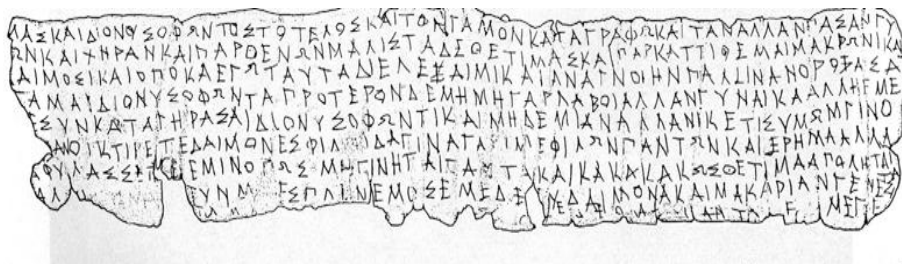 ΜΑΣΚΑΙΔΙΟΝΥΣΟΦΩΝΤΟΣΤΟΤΕΛΟΣΚΑΙΤΟΝΓΑΜΟΝΚΑΤΑΓΡΑΦΩΚΑΙΤΑΝΑΛΛΑΝΠΑΣΑΝΓΥ
ΩΝΚΑΙΧΗΡΑΝΚΑΙΠΑΡΘΕΝΩΝΜΑΛΙΣΤΑΔΕΘΕΤΙΜΑΣΚΑΙΠΑΡΚΑΤΤΙΘΕΜΑΙΜΑΚΡΩΝΙΚΑΙ
ΑΙΜΟΣΙΚΑΙΟΠΟΚΑΕΓΩΤΑΥΤΑΔΙΕΛΕΞΑΙΜΙΚΑΙΑΝΑΓΝΟΙΗΝΠΑΛΛΙΝΑΝΟΡΟΞΑΣΑ
ΓΑΜΑΙΔΙΟΝΥΣΟΦΩΝΤΑΠΡΟΤΕΡΟΝΔΕΜΗΜΗΓΑΡΛΑΒΟΙΑΛΛΑΝΓΥΝΑΙΚΑΑΛΛΗΕΜΕ
ΕΣΥΝΚΑΤΑΓΗΡΑΣΑΙΔΙΟΝΥΣΟΦΩΝΤΙΚΑΙΜΗΔΕΜΙΑΝΑΛΛΑΝΙΚΕΤΙΣΥΜΩΜΓΙΝΟ
ΑΝΟΙΚΤΙΡΕΤΕΔΑΙΜΟΝΕΣΦΙΛΟΙΔΑΓΙΝΑΓΑΡΙΜΕΦΙΛΩΝΠΑΝΤΩΝΚΑΙΕΡΗΜΑΑΛΛΑ
ΦΥΛΑΣΣΕΤΕΕΜΙΝΟΠΩΣΜΗΓΙΝΗΤΑΙΤΑΥΤΑΚΑΙΚΑΚΑΚΑΚΩΣΘΕΤΙΜΑΑΠΟΛΗΤΑΙ
ΑΛ ΥΝΜ ΕΣΠΛΙΝΕΜΟΣΕΜΕΔΕΕΥΔΑΙΜΟΝΑΚΑΙΜΑΚΑΡΙΑΝΓΕΝΕΣ
ΜΕΓΕ